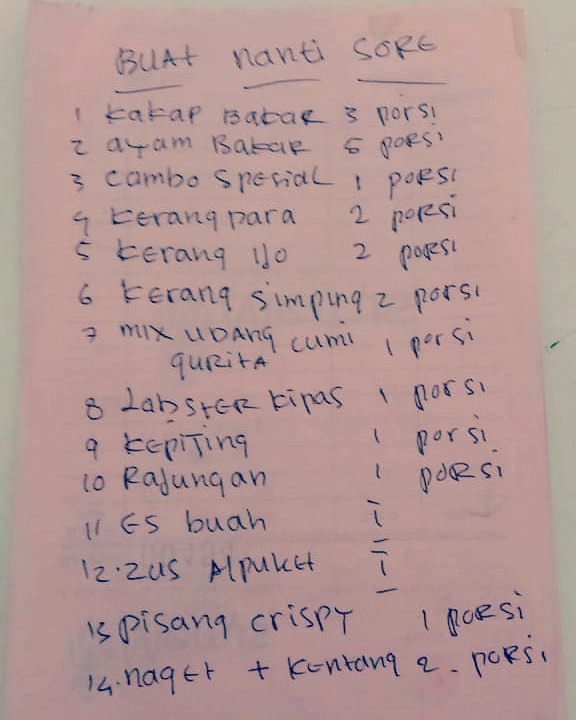 BUAt nanti SORE
1 kakap Bakar 3 porsi
2 ayam Bakar 5 porsi
3 cambo spesial 1 porsi
4 kerang para 2 porsi
5 kerang ijo 2 porsi
6 kerang simping 2 porsi
7 mix udang cumi 1 porsi
qurita
8 Labster kipas 1 porsi
9 kepiting 1 porsi
10 Rajungan 1 porsi
11 ES buah 1
12. zus Alpuket 1
13 pisang crispy 1 porsi
14. naget + kentang 2 - porsi